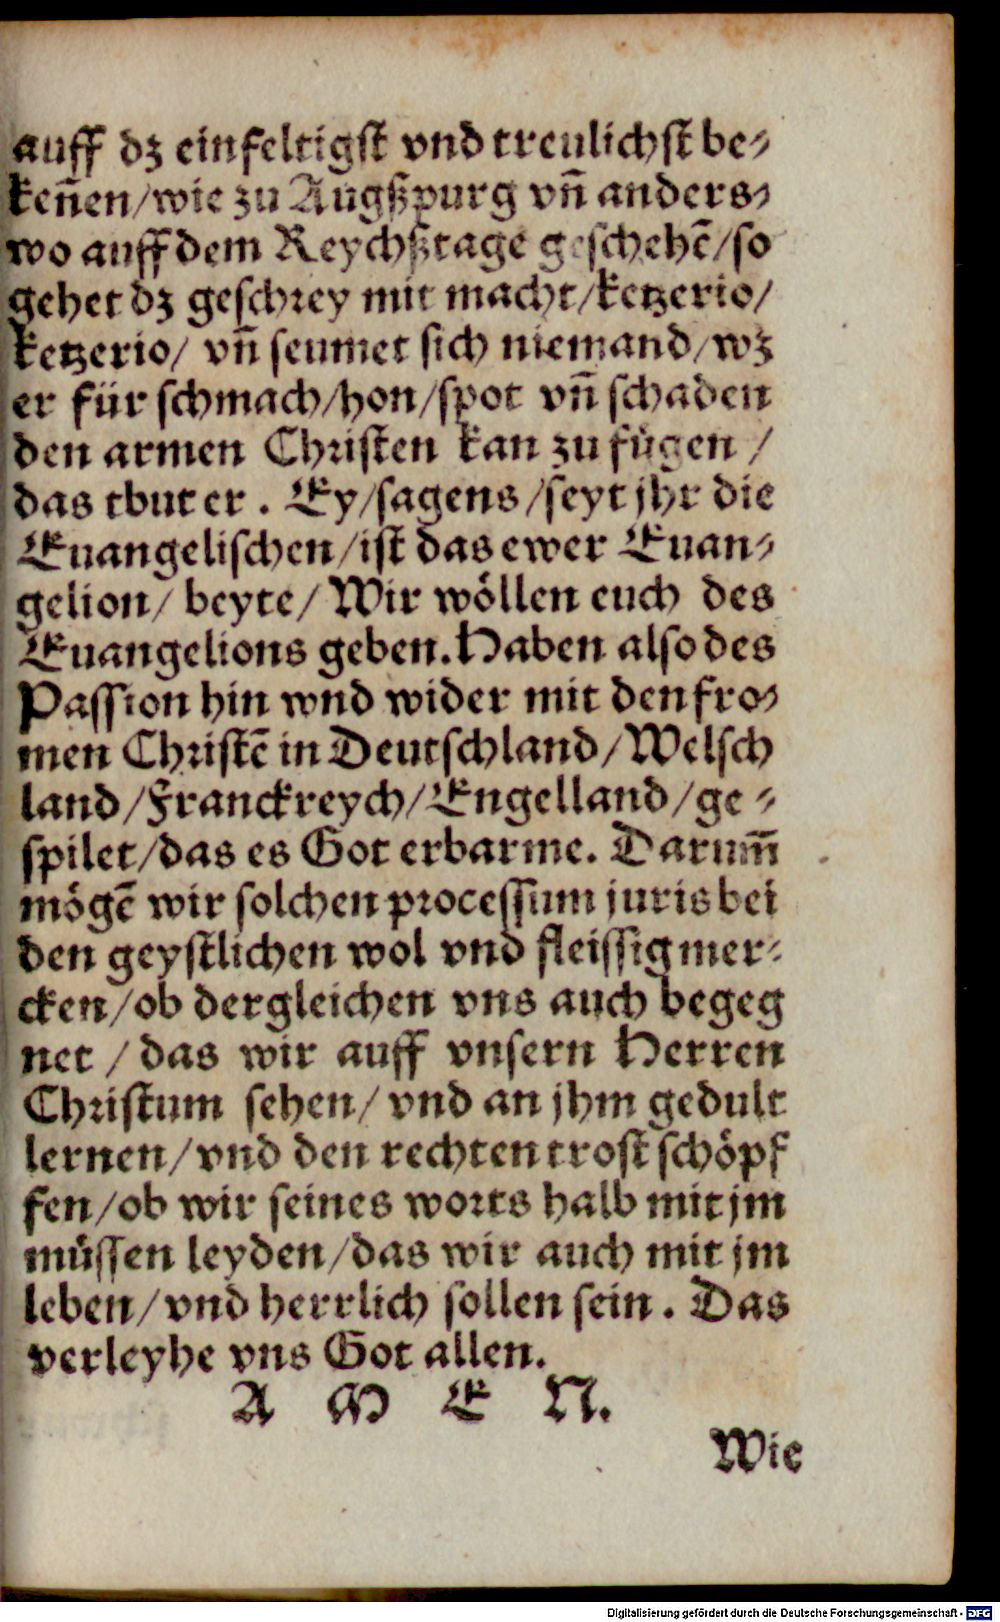 auff dz einfeltigst vnd treulichst be⸗
ken̄en/wie zu Augßpurg vn̄ anders⸗
wo auff dem Reychßtage geschehē/so
gehet dz geschrey mit macht/ketzerio/
ketzerio/ vn̄ seumet sich niemand/wz
er für schmach/hon/spot vn̄ schaden
den armen Christen kan zu fügen /
das thut er . Ey/sagens/seyt jhr die
Euangelischen/ist das ewer Euan⸗
gelion/ beyte/ Wir wöllen euch des
Euangelions geben. Haben also des
Passion hin wnd wider mit den fro⸗
men Christē in Deutschland/Welsch
land/Franckreych/Engelland/ge⸗
spilet/das es Got erbarme. Darum̄
mögē wir solchen processum juris bei
den geystlichen wol vnd fleissig mer⸗
cken/ob dergleichen vns auch begeg
net / das wir auff vnsern Herren
Christum sehen/ vnd an jhm gedult
lernen/vnd den rechten trost schöpf
fen/ob wir seines worts halb mit jm
müssen leyden/das wir auch mit jm
leben/vnd herrlich sollen sein. Das
verleyhe vns Got allen.
A M E N.
Wie
Digitalisierung gefördert durch die Deutsche Forschungsgemeinschaft - DFG